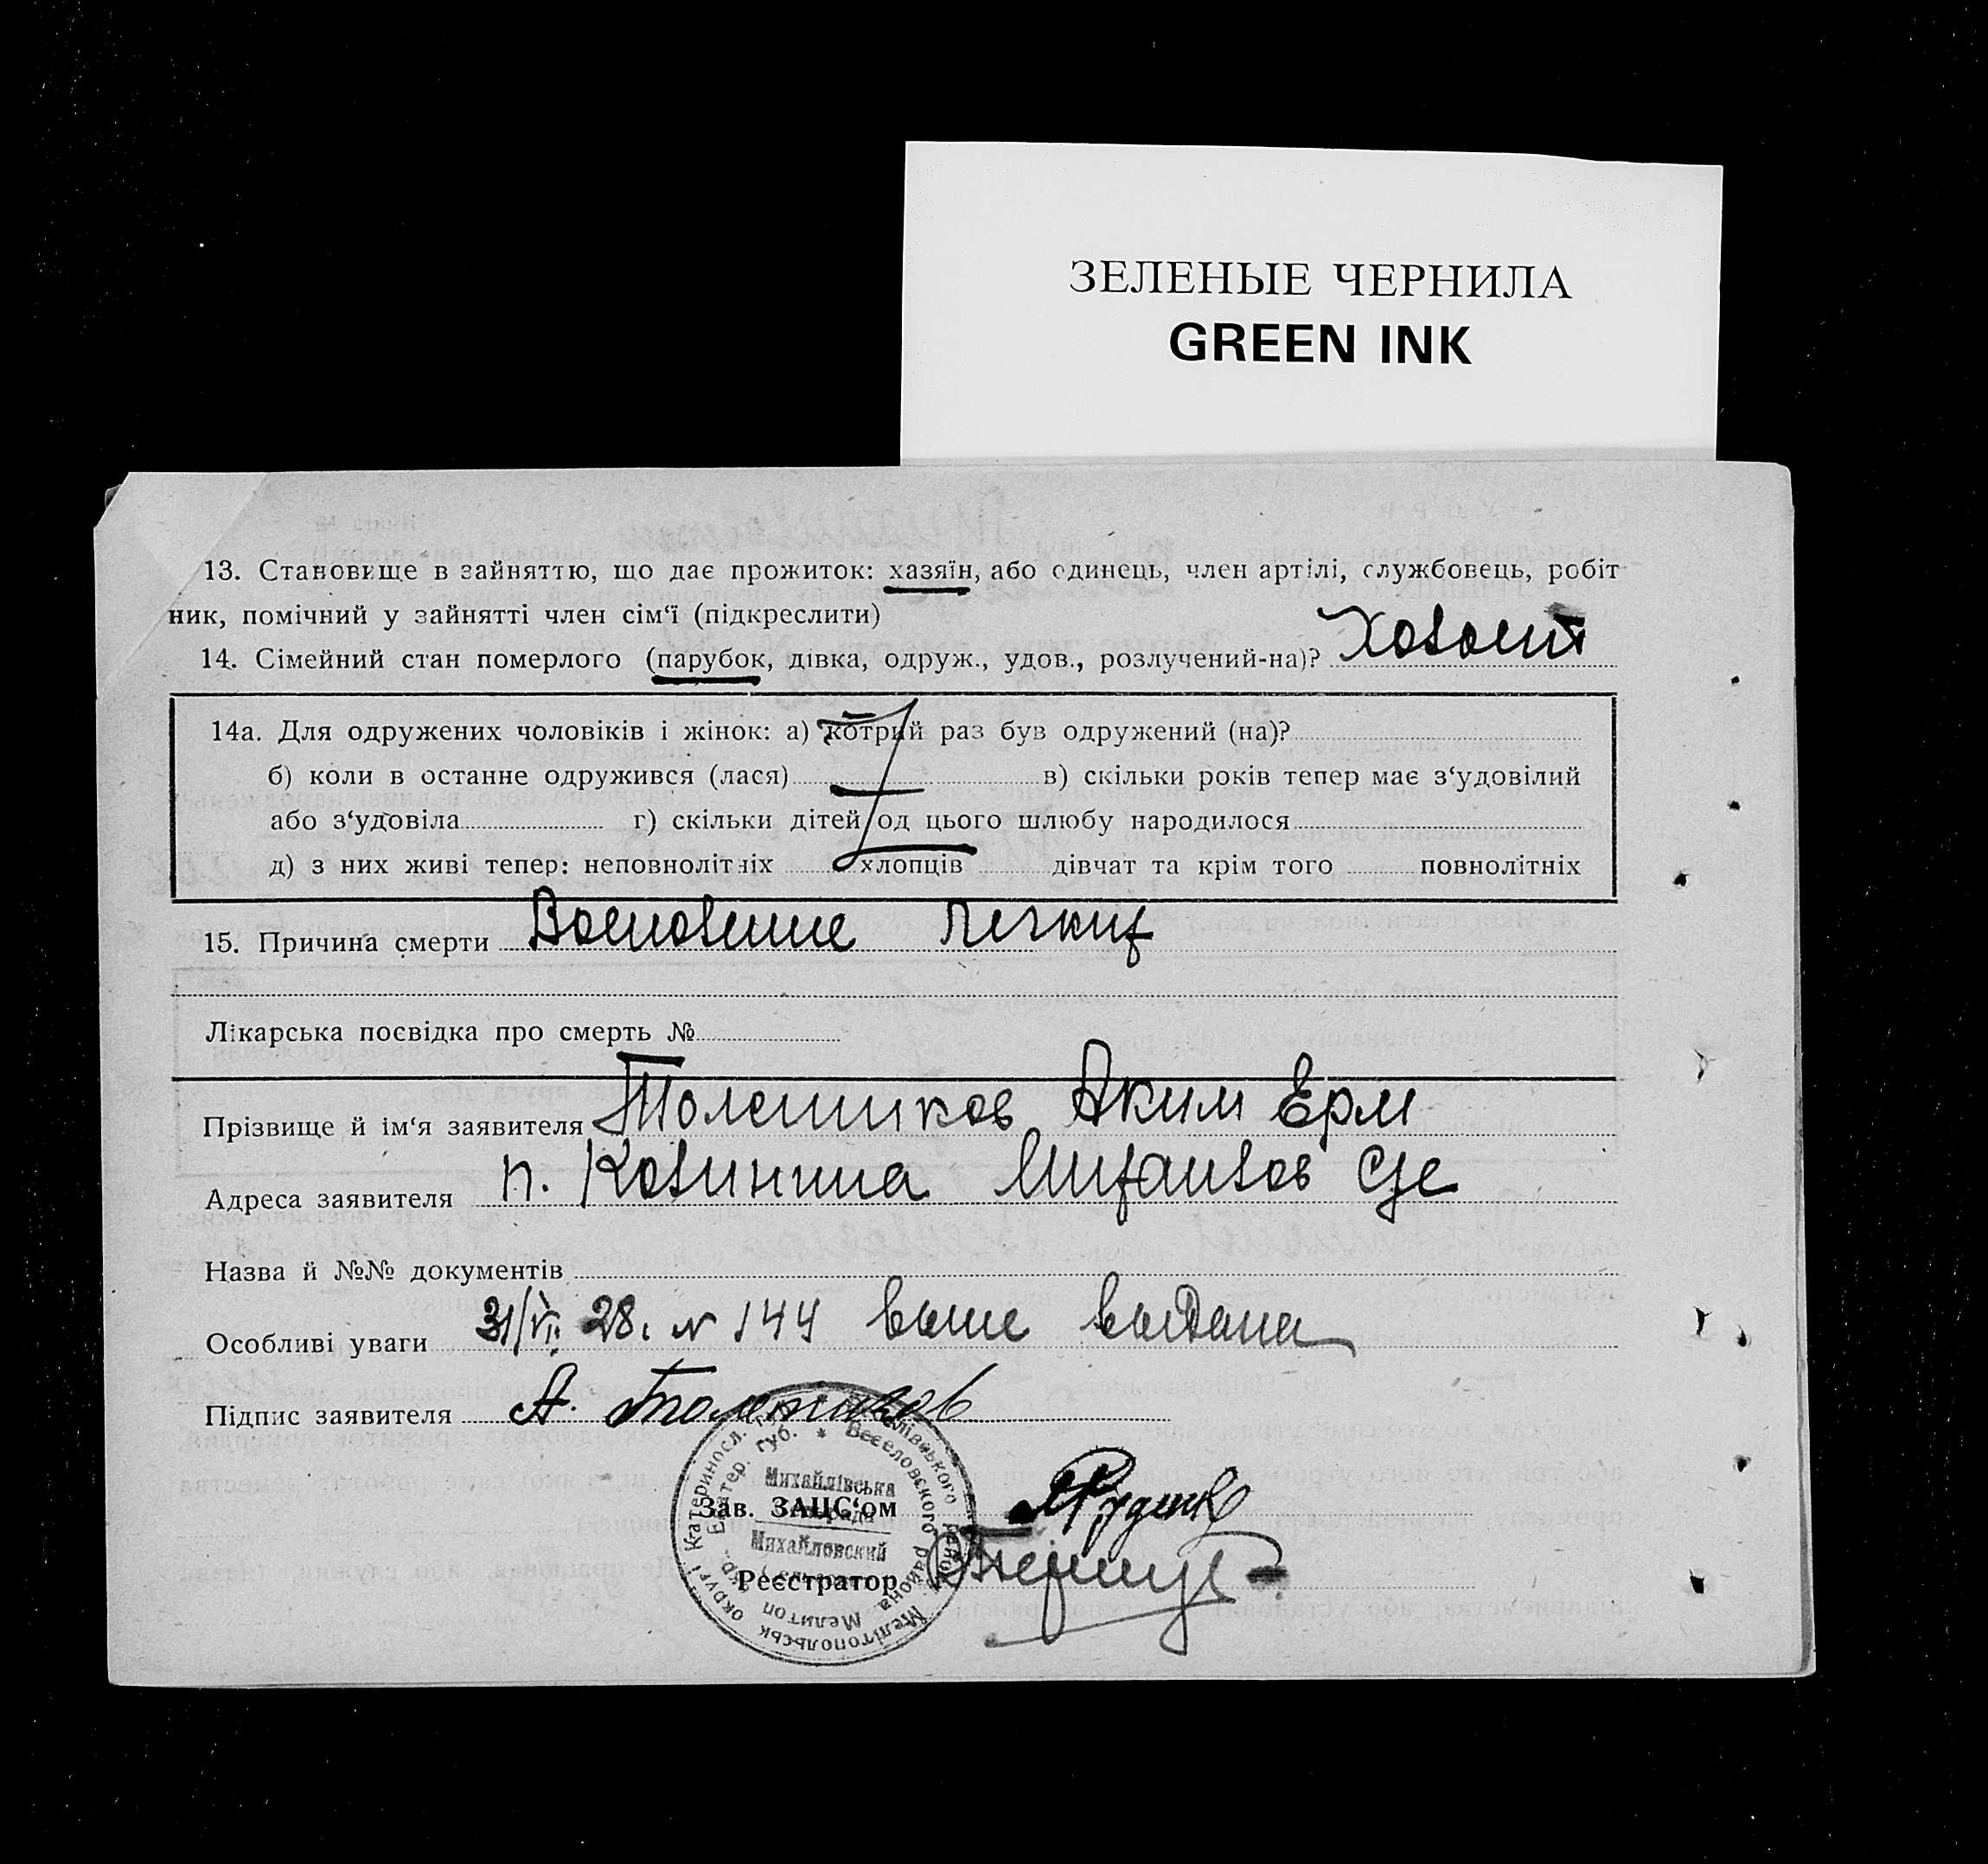 ЗЕЛЕНЫЕ ЧЕРНИЛА
GREEN INK
13. Становище в зайняттю, що дає прожиток: хазяїн, або одинець, член артілі, службовець, робіт
ник, помічний у зайнятті член сім‘ї (підкреслити)
14. Сімейний стан померлого (парубок, дівка, одруж., удов., розлучений-на)?
14а. Для одружених чоловіків і жінок: а) котрий раз був одружений (на)?
б) коли в останне одружився (лася) в) скільки років тепер має з‘удовілий
або з‘удовіла г) скільки дітей од цього шлюбу народилося
д) з них живі тепер: неповнолітніх хлопців дівчат та крім того повнолітніх
15. Причина смерти
Лікарська посвідка про смерть №
Прізвище й ім‘я заявителя Аким Ерм
Адреса заявителя п.
Назва й №№ документів
Особливі уваги 28. N 144 выдана
Підпис заявителя А.
Зав. ЗАЦС‘ом
Реєстратор
Михайлівська
Михайловский
Мелітопольськ округі Катеринosл.
Веселовского района Мелитоп